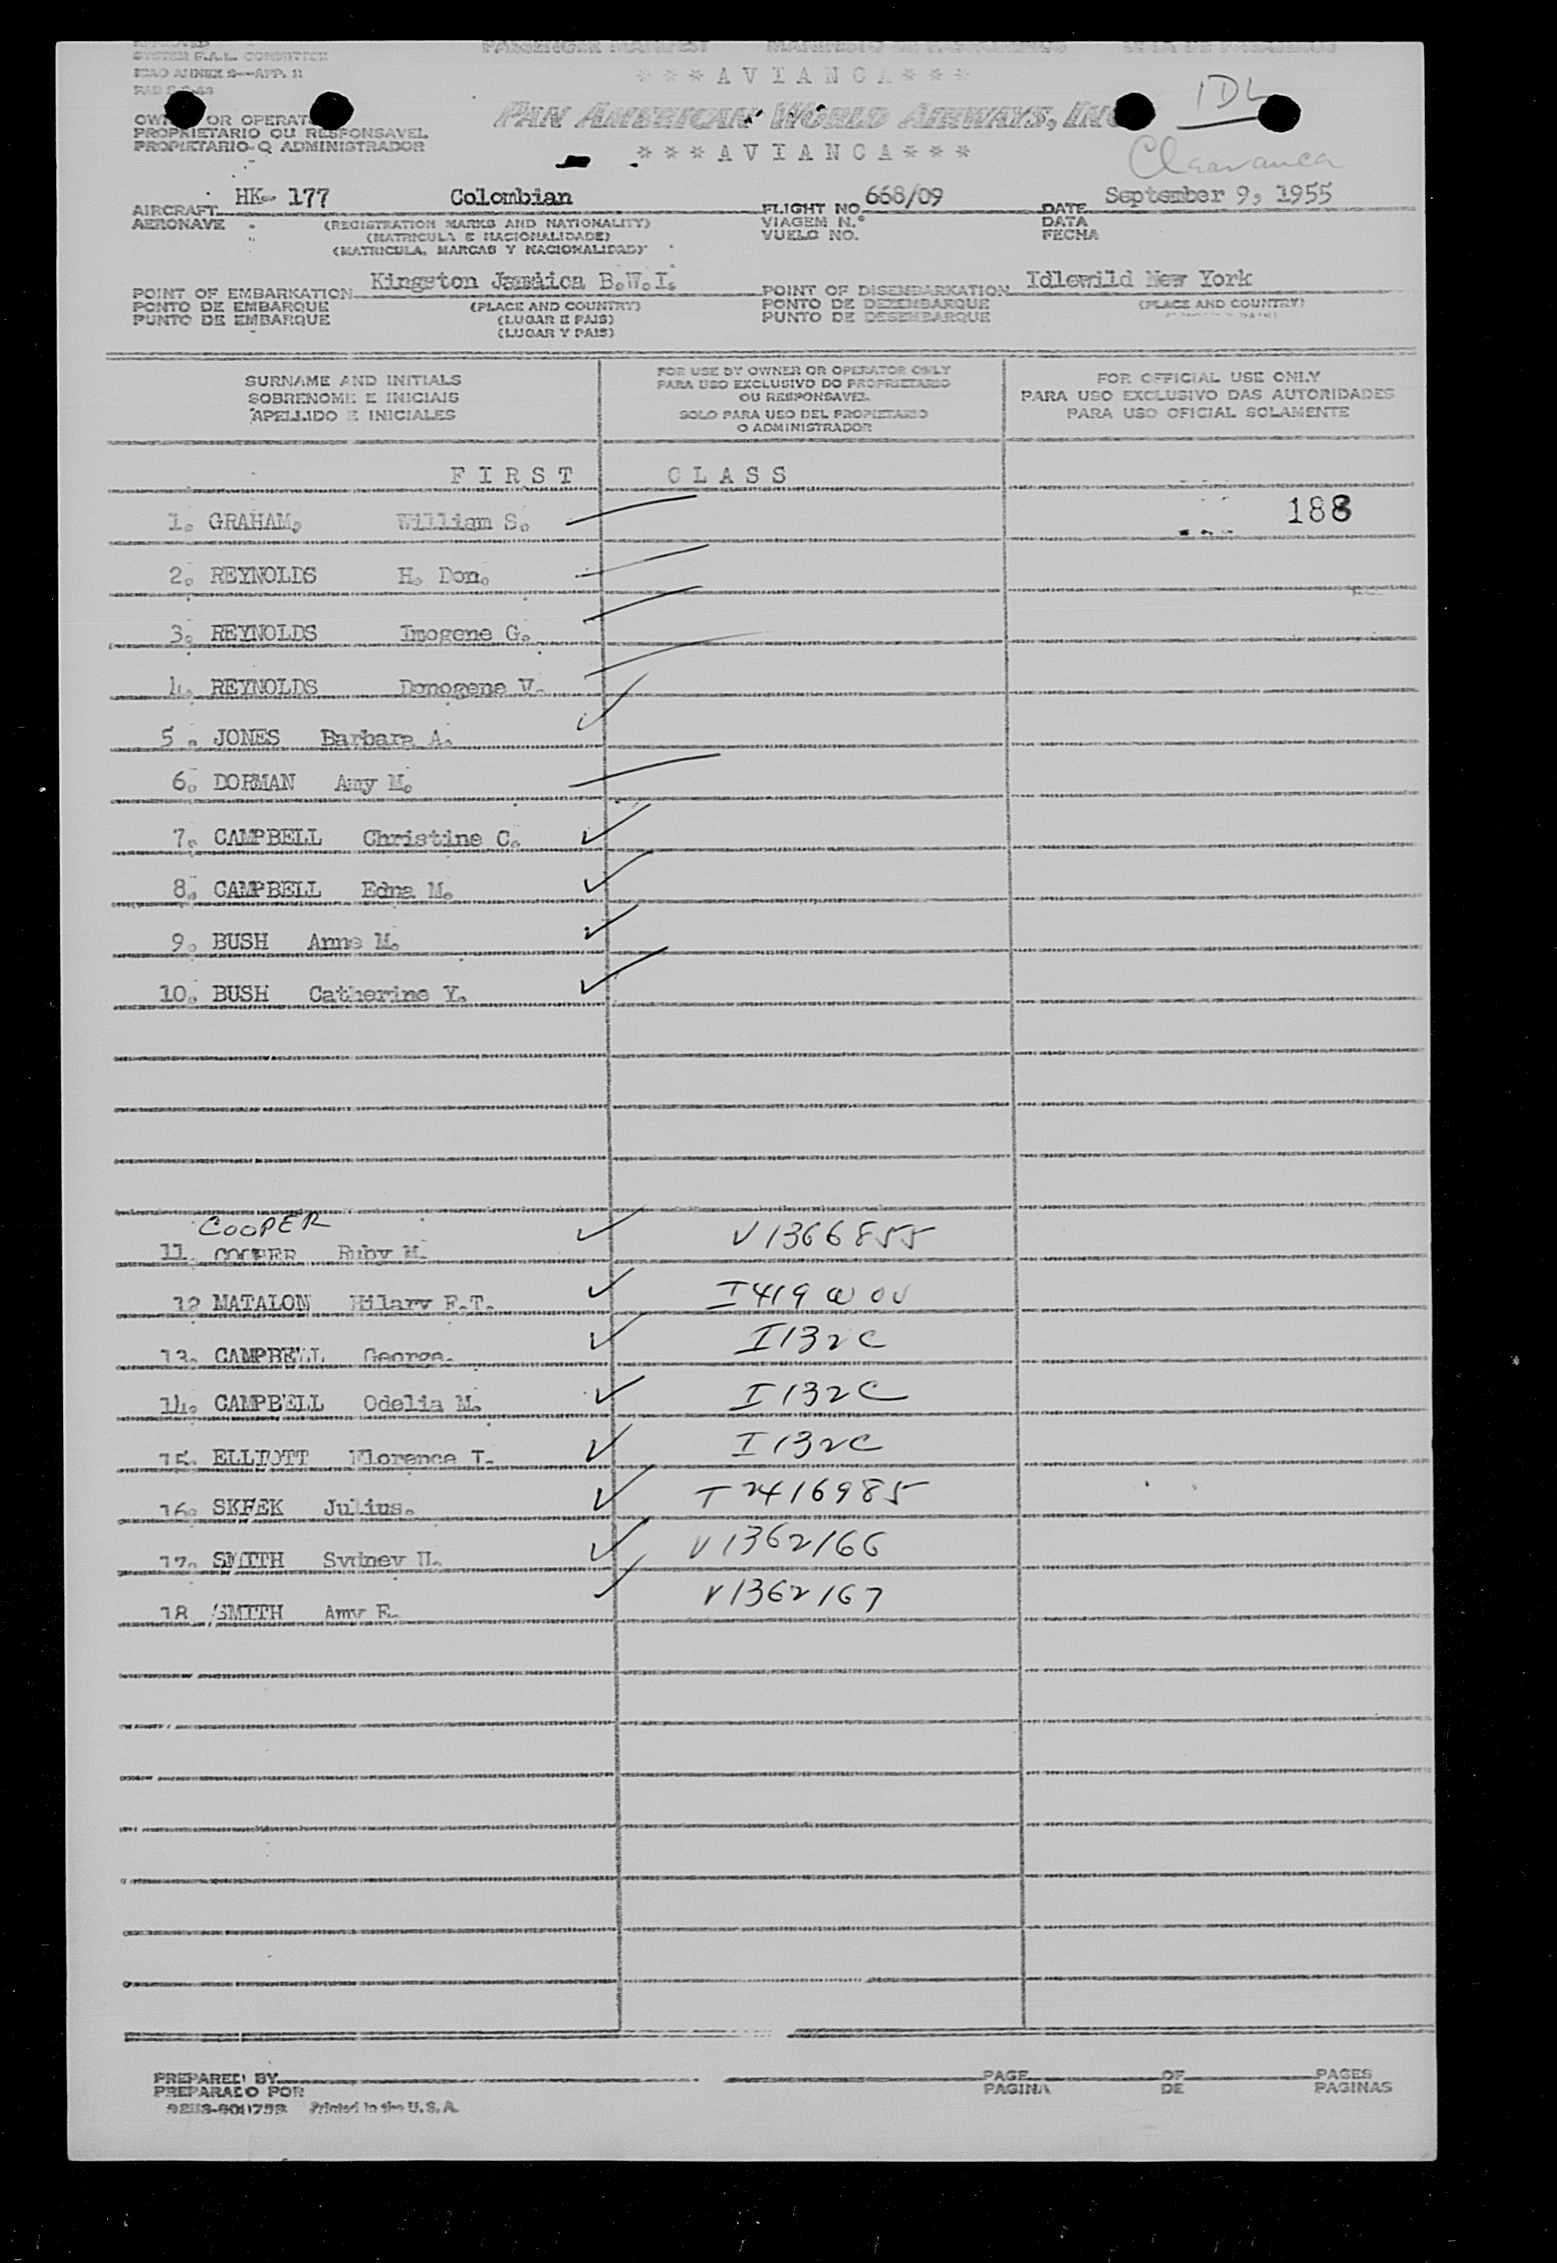 PASSENGER MANIFEST MANIFESTO DE PASAGEIROS LISTA DE PASAJEROS
ICAO ANNEX 9—APP. 2
* * * A V I A N C A * * *
IDL
PAN AMERICAN WORLD AIRWAYS, INC
OWNER OR OPERATOR
PROPRIETARIO OU RESPONSAVEL
PROPIETARIO O ADMINISTRADOR
* * * A V I A N C A * * *
AIRCRAFT HK- 177 Colombian FLIGHT NO. 668/09 DATE September 9, 1955
AERONAVE (REGISTRATION MARKS AND NATIONALITY) VIAGEM N.º DATA
(MATRICULA E NACIONALIDADE) VUELO NO. FECHA
(MATRICULA, MARCAS Y NACIONALIDAD)
POINT OF EMBARKATION Kingston Jamaica B.W.I. POINT OF DISEMBARKATION Idlewild New York
PONTO DE EMBARQUE (PLACE AND COUNTRY) PONTO DE DEZEMBARQUE (PLACE AND COUNTRY)
PUNTO DE EMBARQUE (LUGAR E PAIS) PUNTO DE DESEMBARQUE
(LUGAR Y PAIS)
SURNAME AND INITIALS
SOBRENOME E INICIAIS
APELLIDO E INICIALES
FOR USE BY OWNER OR OPERATOR ONLY
PARA USO EXCLUSIVO DO PROPRIETARIO
OU RESPONSAVEL
SOLO PARA USO DEL PROPIETARIO
O ADMINISTRADOR
FOR OFFICIAL USE ONLY
PARA USO EXCLUSIVO DAS AUTORIDADES
PARA USO OFICIAL SOLAMENTE
F I R S T C L A S S
1. GRAHAM, William S. 188
2. REYNOLDS H. Don.
3. REYNOLDS Imogene G.
4. REYNOLDS Donogene V.
5 . JONES Barbara A.
6. DORMAN Amy M.
7. CAMPBELL Christine C.
8. CAMPBELL Edna M.
9. BUSH Anne M.
10. BUSH Catherine Y.
COOPER
11 COOPER Ruby M. V1366855
12 MATALON Hilary F.T. I419
13. CAMPBELL George. I132C
14. CAMPBELL Odelia M. I132C
15. ELLIOTT Florence I. I132C
16. SKEEK Julius. T2416985
17. SMITH Sydney U. V1362166
18 SMITH Amy E. V1362167
PREPARED BY PAGE OF PAGES
PREPARADO POR PAGINA DE PAGINAS
Printed in the U.S.A.